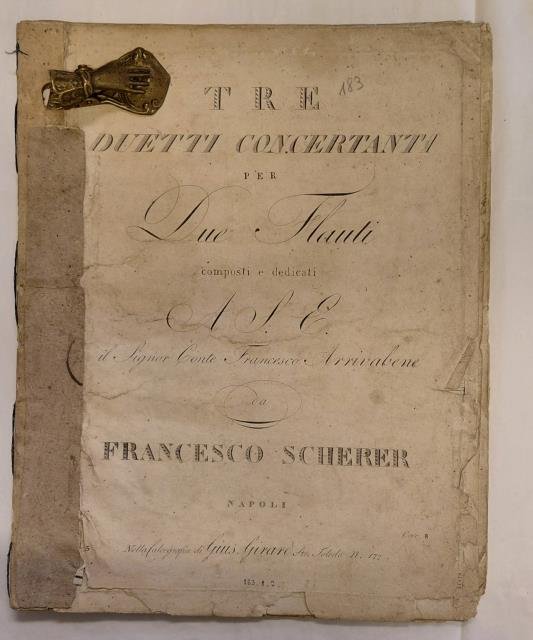 183
TRE
DUETTI CONCERTANTI
PER
Due Flauti
composti e dedicati
A S. E.
il Signor Conte Francesco Arrivabene
da
FRANCESCO SCHERER
NAPOLI
5 Nella calcografia di Gius. Girard Toledo N. 177
163.1.2.